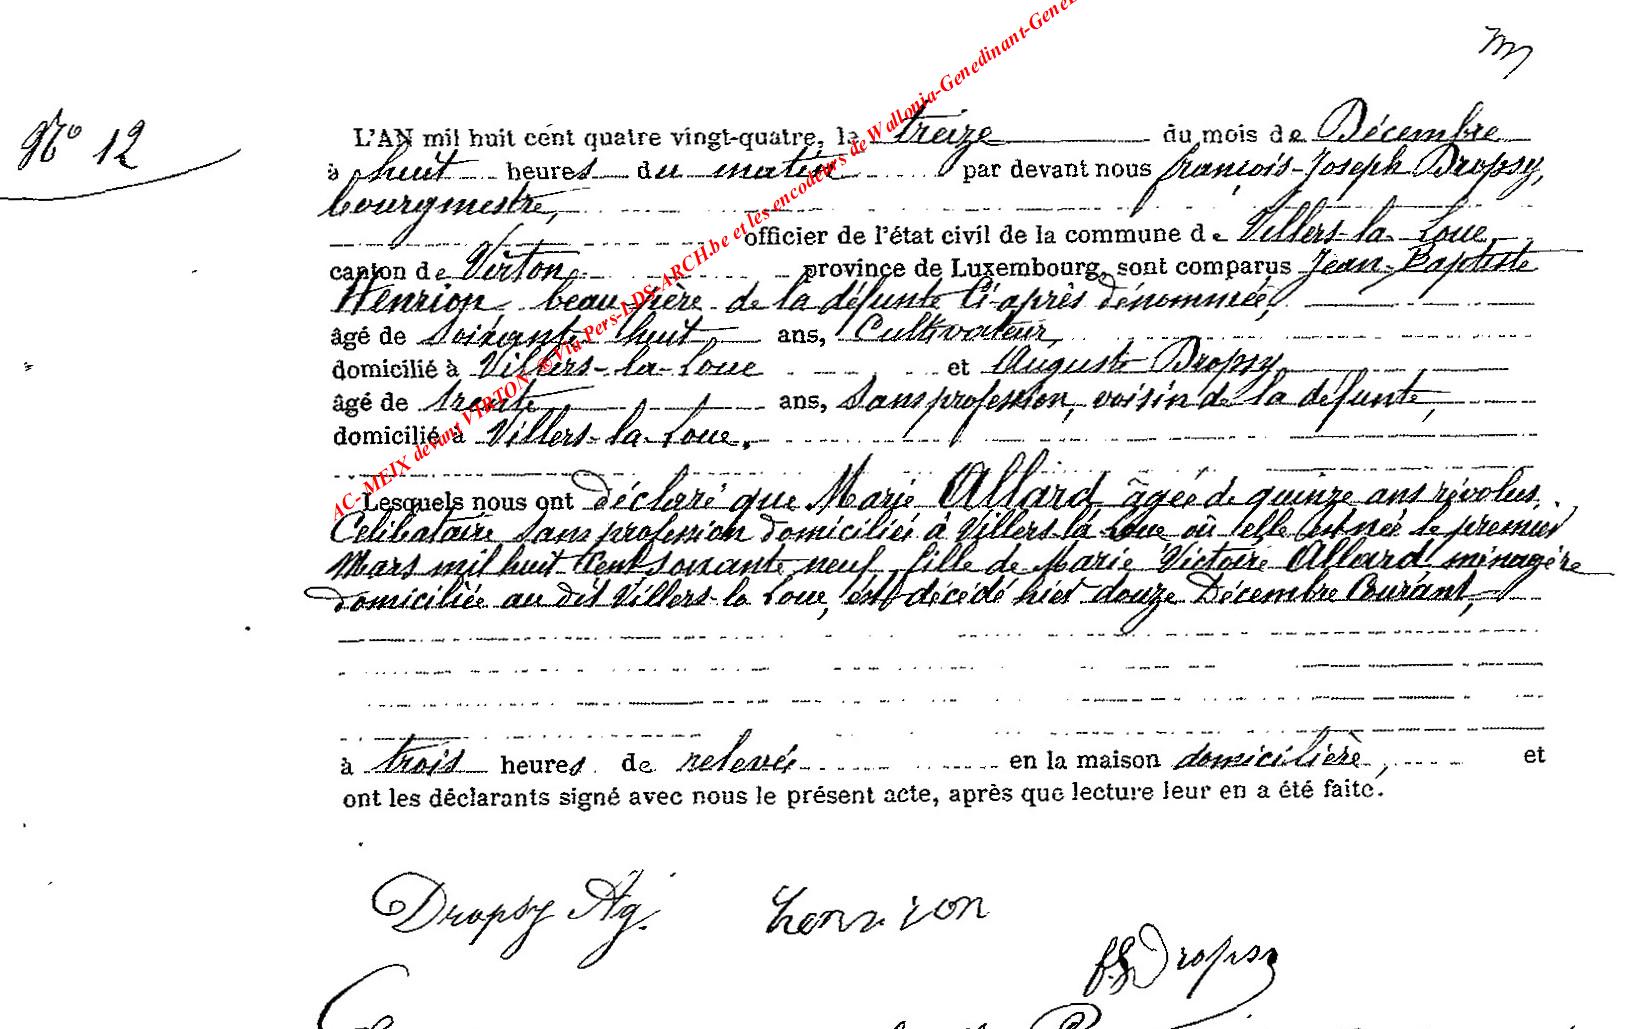 m
N° 12
L'AN mil huit cent quatre vingt-quatre, le treize du mois de Décembre
à huit heures du matin par devant nous françois-Joseph Dropsy,
bourgmestre,
officier de l'état civil de la commune de Villers-la-Loue,
canton de Virton, province de Luxembourg, sont comparus Jean-Baptiste
Henrion, beau-père de la défunte Ci-après dénommée,
âgé de soixante huit ans, Cultivateur,
domicilié à Villers-la-Loue et Auguste Dropsy,
âgé de trente ans, Sans profession, voisin de la défunte,
domicilié à Villers-la-Loue.
Lesquels nous ont déclaré que Marie Allard, âgée de quinze ans révolus,
Célibataire sans profession domiciliée à Villers-la-Loue où elle est née le premier
Mars mil huit Cent soixante neuf, fille de Marie Victoire Allard ménagère
domiciliée au dit Villers-la Loue, est décédé hier douze Décembre Courant,
à trois heures de relevée en la maison domicilière, et
ont les déclarants signé avec nous le présent acte, après que lecture leur en a été faite.
Dropsy Ag. henrion
f J Dropsy
AC-MEIX devant VIRTON ® Via Pers-LDS-ARCH.be et les encodeurs de Wallonia-Genedinant-Gene